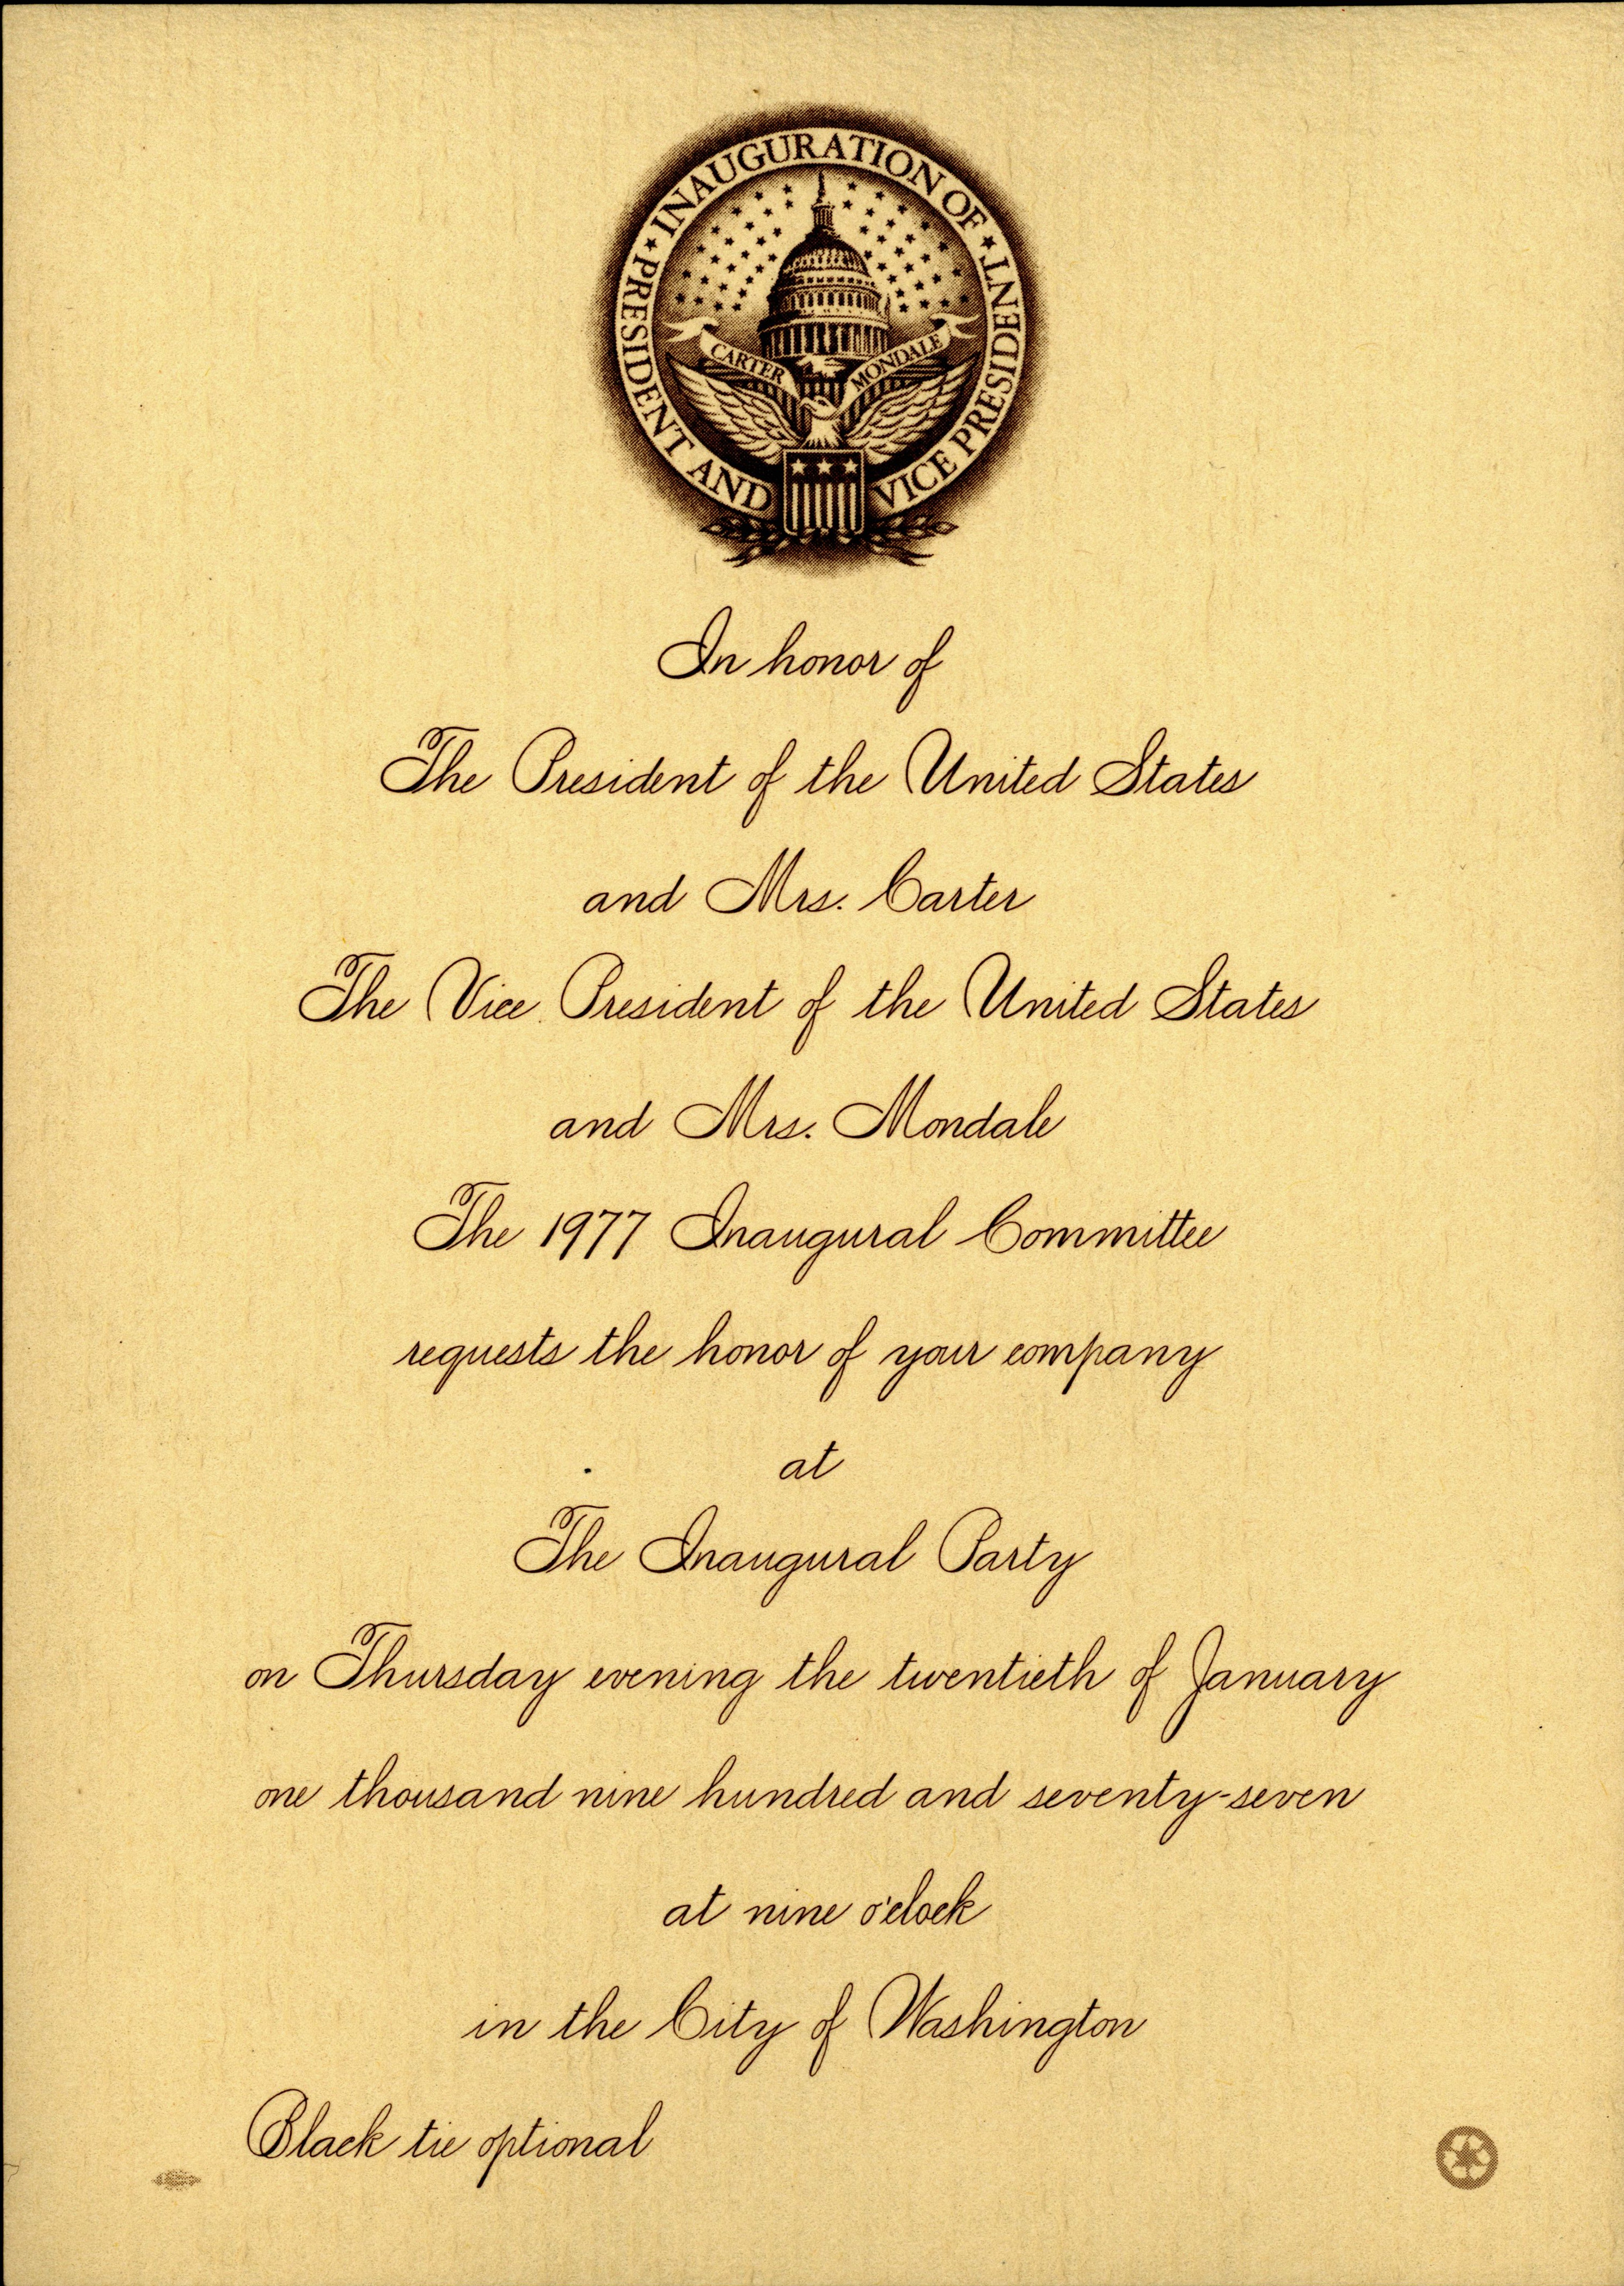 INAUGURATION OF
PRESIDENT AND VICE PRESIDENT
CARTER MONDALE
In honor of
The President of the United States
and Mrs. Carter
The Vice President of the United States
and Mrs. Mondale
The 1977 Inaugural Committee
requests the honor of your company
at
The Inaugural Party
on Thursday evening the twentieth of January
one thousand nine hundred and seventy-seven
at nine o'clock
in the City of Washington
Black tie optional